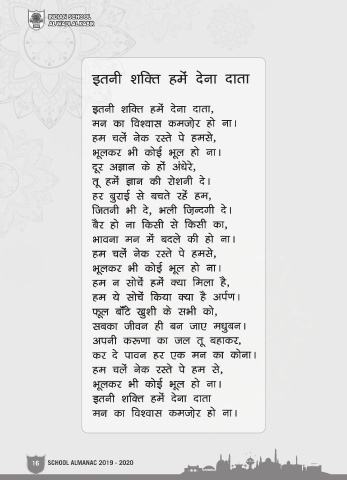 INDIAN SCHOOL
AL WADI AL KABIR
इतनी शक्ति हमें देना दाता
इतनी शक्ति हमें देना दाता,
मन का विश्वास कमज़ोर हो ना।
हम चलें नेक रस्ते पे हमसे,
भूलकर भी कोई भूल हो ना।
दूर अज्ञान के हों अंधेरे,
तू हमें ज्ञान की रोशनी दे।
हर बुराई से बचते रहें हम,
जितनी भी दे, भली ज़िन्दगी दे।
बैर हो ना किसी से किसी का,
भावना मन में बदले की हो ना।
हम चलें नेक रस्ते पे हमसे,
भूलकर भी कोई भूल हो ना।
हम न सोचें हमें क्या मिला है,
हम ये सोचें किया क्या है अर्पण।
फूल बाँटे खुशी के सभी को,
सबका जीवन ही बन जाए मधुबन।
अपनी करूणा का जल तू बहाकर,
कर दे पावन हर एक मन का कोना।
हम चलें नेक रस्ते पे हम से,
भूलकर भी कोई भूल हो ना।
इतनी शक्ति हमें देना दाता
मन का विश्वास कमज़ोर हो ना।
16 SCHOOL ALMANAC 2019 - 2020